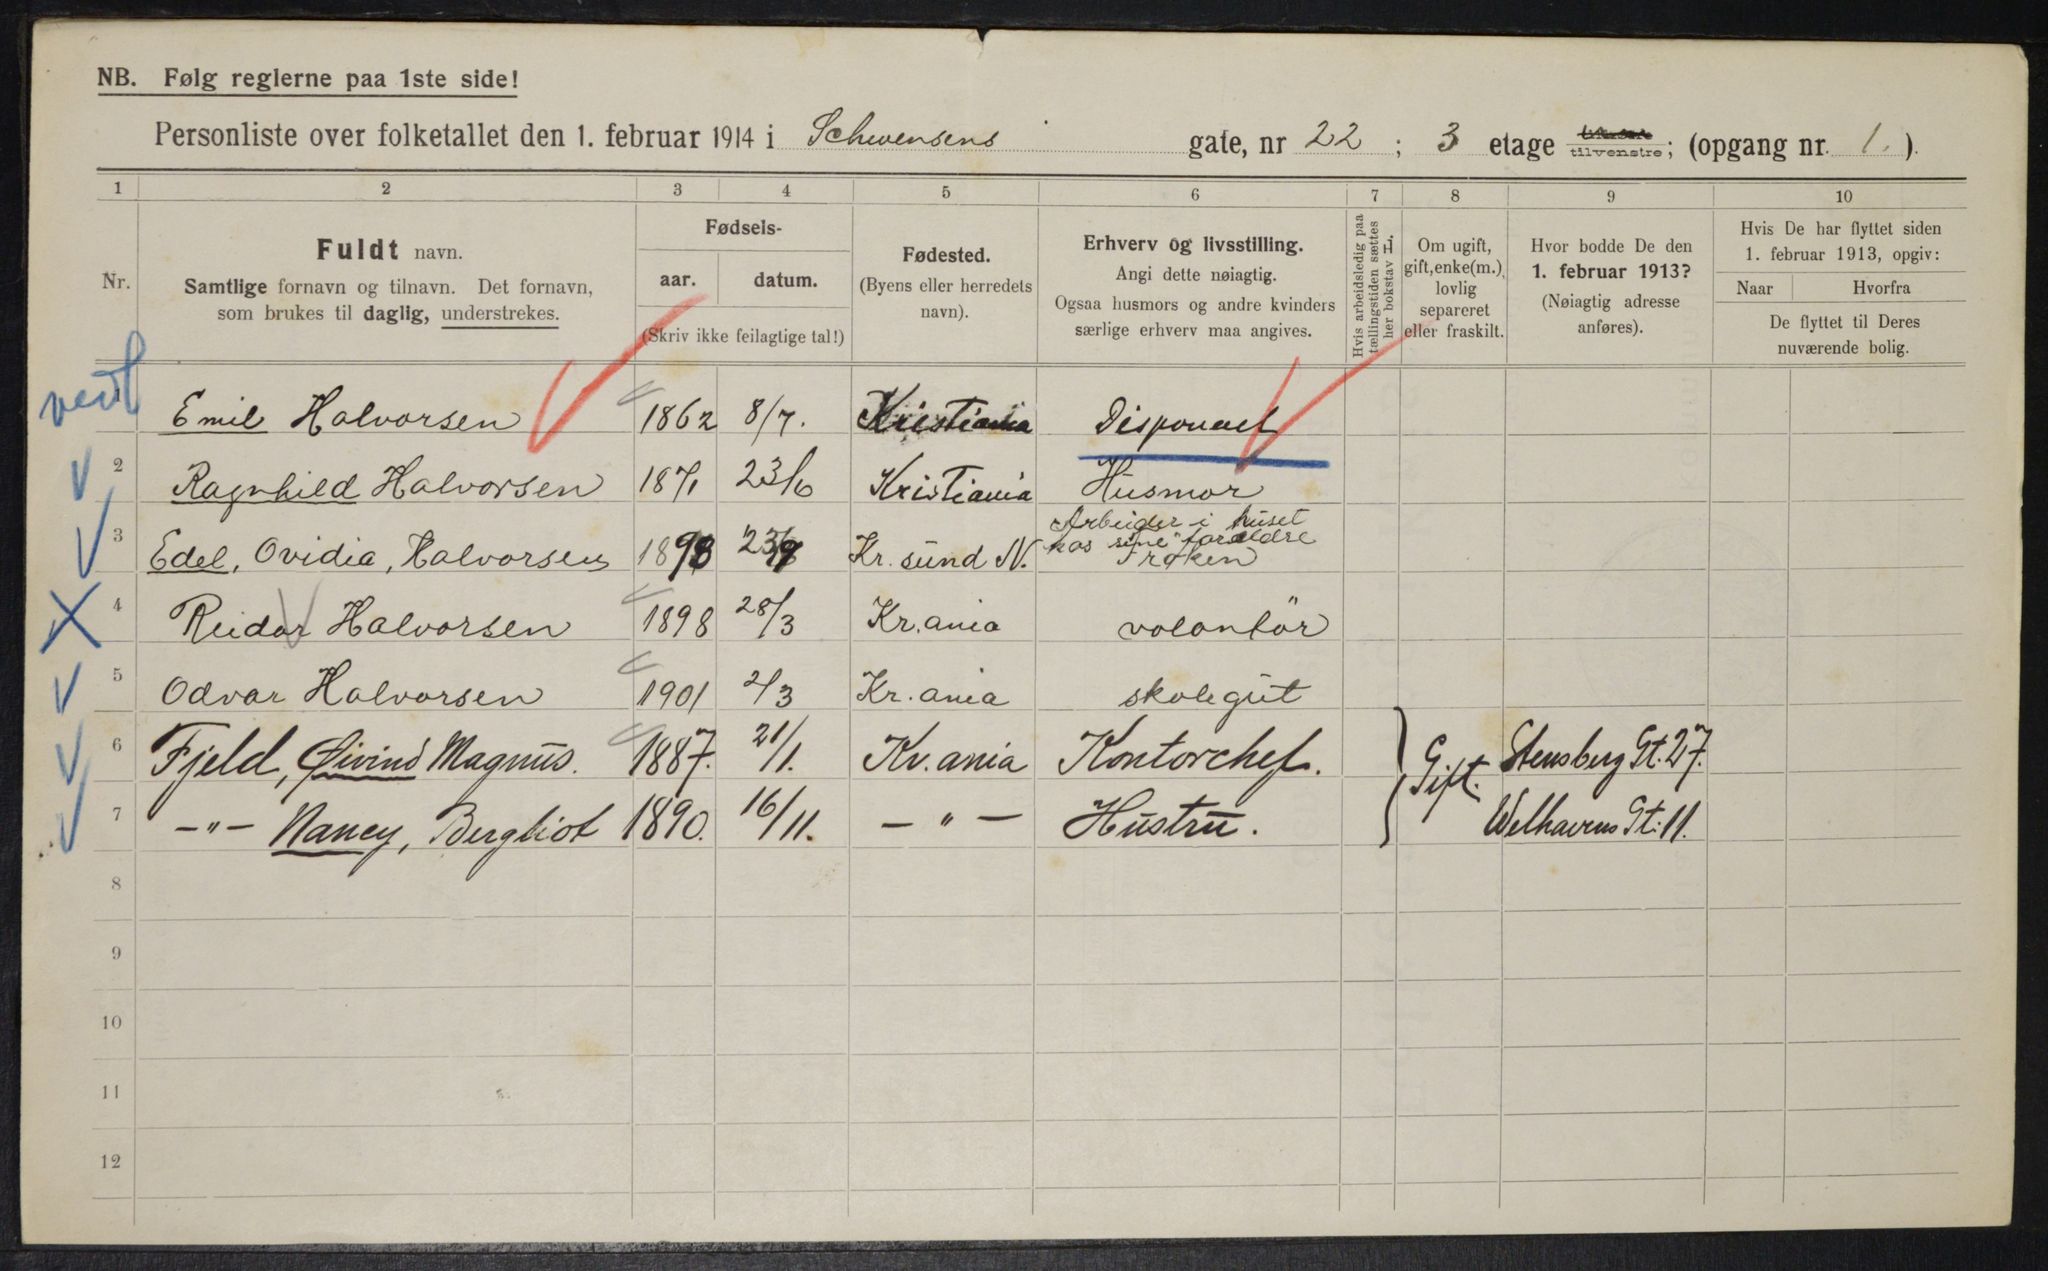 NB. Følg reglerne paa 1ste side!
Personliste over folketallet den 1. februar 1914 i Schwensens gate, nr 22 ; 3 etage tilvenstre; (opgang nr. 1. ).
1 2 3 4 5 6 7 8 9 10
Nr.
Fuldt navn.
Samtlige fornavn og tilnavn. Det fornavn,
som brukes til daglig, understrekes.
Fødsels-
aar. datum.
(Skriv ikke feilagtige tal!)
Fødested.
(Byens eller herredets
navn).
Erhverv og livsstilling.
Angi dette nøiagtig.
Ogsaa husmors og andre kvinders
særlige erhverv maa angives.
Hvis arbeidsledig paa
tællingstiden sættes
her bokstav L.
Om ugift,
gift, enke(m.),
lovlig
separeret
eller fraskilt.
Hvor bodde De den
1. februar 1913?
(Nøiagtig adresse
anføres).
Hvis De har flyttet siden
1. februar 1913, opgiv:
Naar Hvorfra
De flyttet til Deres
nuværende bolig.
Emil Halvorsen 1862 8/7. Kristiania Disponent
2 Ragnhild Halvorsen 1871 23/6 Kristiania Husmor
3 Edel, Ovidia, Halvorsen 1898 Kr. sund N. Arbeider i huset
hos sine forældre
Frøken
4 Reidar Halvorsen 1898 28/3 Kr.ania volontör
5 Odvar Halvorsen 1901 2/3 Kr. ania skolegut
6 Fjeld, Øivind Magnus. 1887. 21/1. Kr. ania Kontorchef. Gift. Stensberg Gt. 27.
7 —"— Nancy, Bergliot 1890. 16/11. — " — Hustru. Welhavens Gt. 11.
8
9
10
11
12